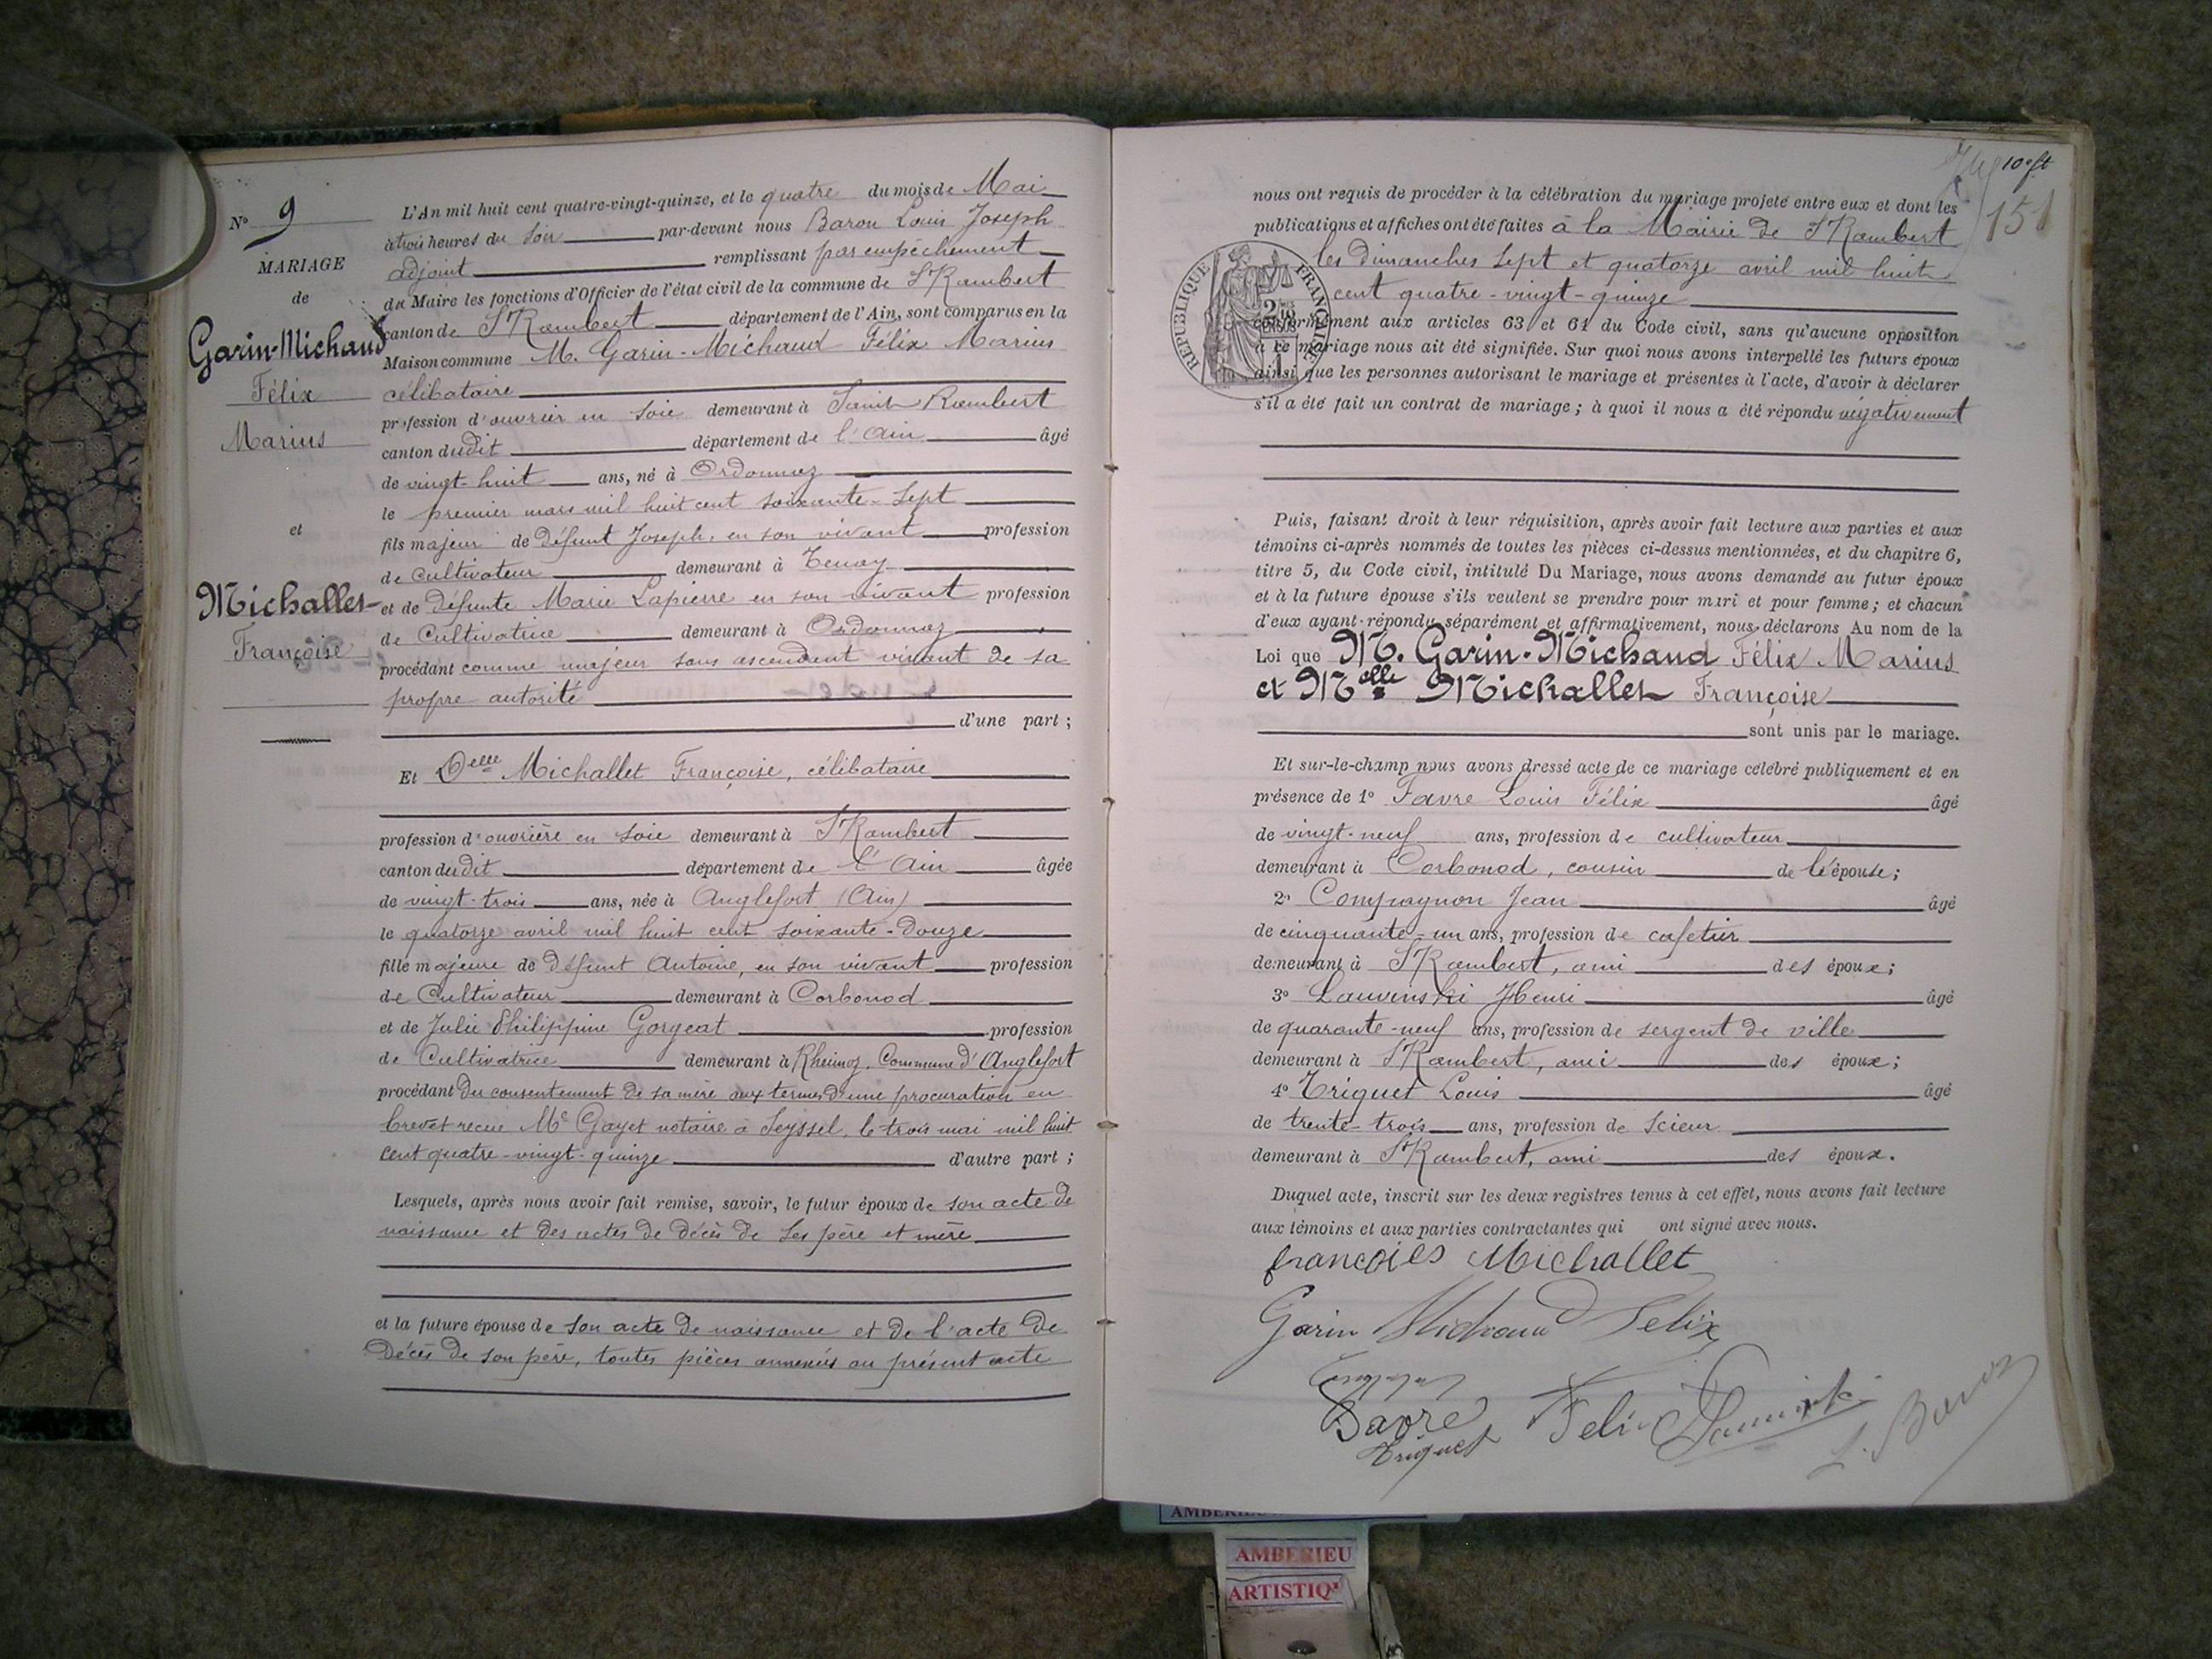 N° 9
MARIAGE
de
Garin-Michaud
Félix
Marius
et
Michallet
Françoise
L'An mil huit cent quatre-vingt-quinze, et le quatre du mois de Mai
à trois heures du soir par-devant nous Baron Louis Joseph
adjoint remplissant par empêchement
du Maire les fonctions d'Officier de l'état civil de la commune de St Rambert
canton de St Rambert département de l'Ain, sont comparus en la
Maison commune M. Garin-Michaud Félix Marius
célibataire
profession d'ouvrier en soie demeurant à Saint Rambert
canton dudit département de l'Ain âgé
de vingt-huit ans, né à Ordonnaz
le premier mars mil huit cent soixante-sept
fils majeur de défunt Joseph, en son vivant profession
de cultivateur demeurant à Tenay
et de défunte Marie Lapierre en son vivant profession
de Cultivatrice demeurant à Ordonnaz
procédant comme majeur sans ascendant vivant de sa
propre autorité
d'une part ;
Et Delle Michallet Françoise, célibataire
profession d'ouvrière en soie demeurant à St Rambert
canton dudit département de l'Ain âgée
de vingt-trois ans, née à Anglefort (Ain)
le quatorze avril mil huit cent soixante-douze
fille majeure de défunt Antoine, en son vivant profession
de Cultivateur demeurant à Corbonod
et de Julie Philippine Gorgeat profession
de Cultivatrice demeurant à Rheimoz, Commune d'Anglefort
procédant du consentement de sa mère aux termes d'une procuration en
brevet reçue Me Gayet notaire à Seyssel, le trois mai mil huit
cent quatre-vingt-quinze d'autre part ;
Lesquels, après nous avoir fait remise, savoir, le futur époux de son acte de
naissance et des actes de décès de ses père et mère
et la future épouse de son acte de naissance et de l'acte de
décès de son père, toutes pièces annexées au présent acte
10e ft
151
nous ont requis de procéder à la célébration du mariage projeté entre eux et dont les
publications et affiches ont été faites à la Mairie de St Rambert
les dimanches sept et quatorze avril mil huit
cent quatre-vingt-quinze
RÉPUBLIQUE FRANÇAISE
conformément aux articles 63 et 64 du Code civil, sans qu'aucune opposition
à ce mariage nous ait été signifiée. Sur quoi nous avons interpellé les futurs époux
ainsi que les personnes autorisant le mariage et présentes à l'acte, d'avoir à déclarer
s'il a été fait un contrat de mariage ; à quoi il nous a été répondu négativement
Puis, faisant droit à leur réquisition, après avoir fait lecture aux parties et aux
témoins ci-après nommés de toutes les pièces ci-dessus mentionnées, et du chapitre 6,
titre 5, du Code civil, intitulé Du Mariage, nous avons demandé au futur époux
et à la future épouse s'ils veulent se prendre pour mari et pour femme ; et chacun
d'eux ayant répondu séparément et affirmativement, nous déclarons Au nom de la
Loi que M. Garin-Michaud Félix Marius
et Melle Michallet Françoise
sont unis par le mariage.
Et sur-le-champ nous avons dressé acte de ce mariage célébré publiquement et en
présence de 1° Favre Louis Félix âgé
de vingt-neuf ans, profession de cultivateur
demeurant à Corbonod, cousin de l'épouse ;
2° Compagnon Jean âgé
de cinquante-un ans, profession de cafetier
demeurant à St Rambert, ami des époux ;
3° Lauvinski Henri âgé
de quarante-neuf ans, profession de sergent de ville
demeurant à St Rambert, ami des époux ;
4° Triquet Louis âgé
de trente-trois ans, profession de scieur
demeurant à St Rambert, ami des époux.
Duquel acte, inscrit sur les deux registres tenus à cet effet, nous avons fait lecture
aux témoins et aux parties contractantes qui ont signé avec nous.
françoies Michallet
Garin Michaud Felix
Favre Felix
Triquet
L. Baron
AMBERIEU
ARTISTIQ